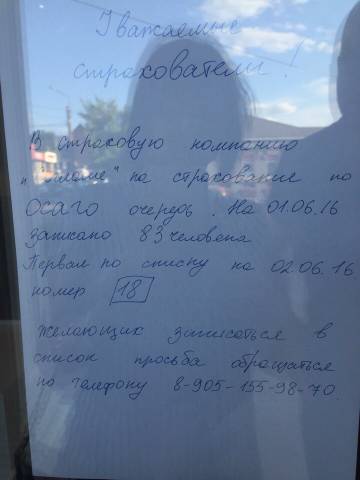 Уважаемые
страхователи!
В страховую компанию
на страхование по
ОСАГО очередь. На 01.06.16
записано 83 человека
Первая по списку на 02.06.16
номер 18
Желающих записаться в
список просьба обращаться
по телефону 8-905-155-98-70.